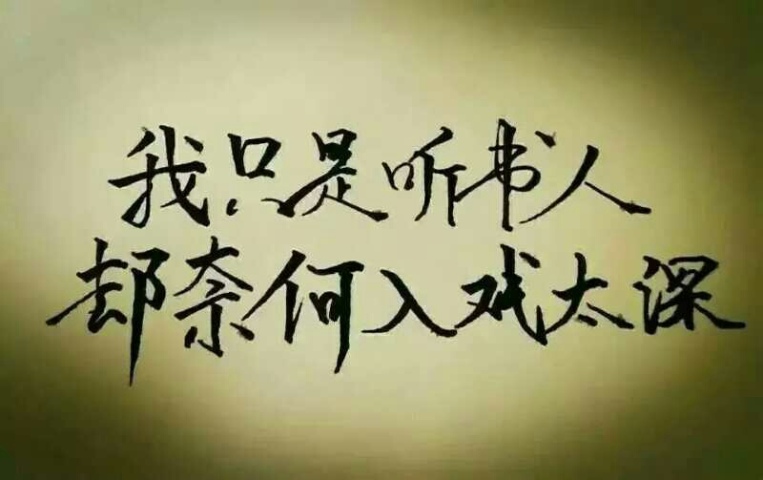 我只是听书人
却奈何入戏太深